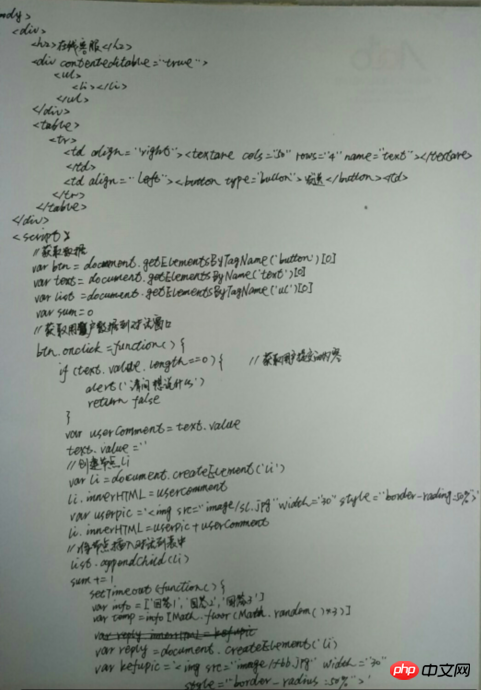 <div>
<h2>在线客服</h2>
<div contenteditable="true">
<ul>
<li></li>
</ul>
</div>
<table>
<tr>
<td align="right"><textare cols="50" rows="4" name="text"></textare>
</td>
<td align="left"><button type="button">发送</button><td>
</tr>
</table>
</div>
<script>
//获取数据
var btn = document.getElementsByTagName('button')[0]
var text = document.getElementsByName('text')[0]
var list = document.getElementsByTagName('ul')[0]
var sum=0
//获取用户数据到对话窗口
btn.onclick=function() {
if (text.value.length==0) { //获取用户提交的内容
alert('请问想说什么')
return false
}
var userComment = text.value
text.value=''
//创建节点li
var li = document.createElement('li')
li.innerHTML=usercomment
var userpic='<img src="image/sl.jpg" width="30" style="border-radius:50%">'
li.innerHTML=userpic+userComment
//将节点插入对话列表中
list.appendChild(li)
sum+=1
setTimeout(function() {
var info = ['回答1','回答2','回答3']
var temp=info[Math.floor(Math.random()*3)]
var reply innerHTML = kefupic
var reply=document.createElement('li)
var kefupic='<img src="image/ width="30"
style="border-radius:50%">'
php中文网